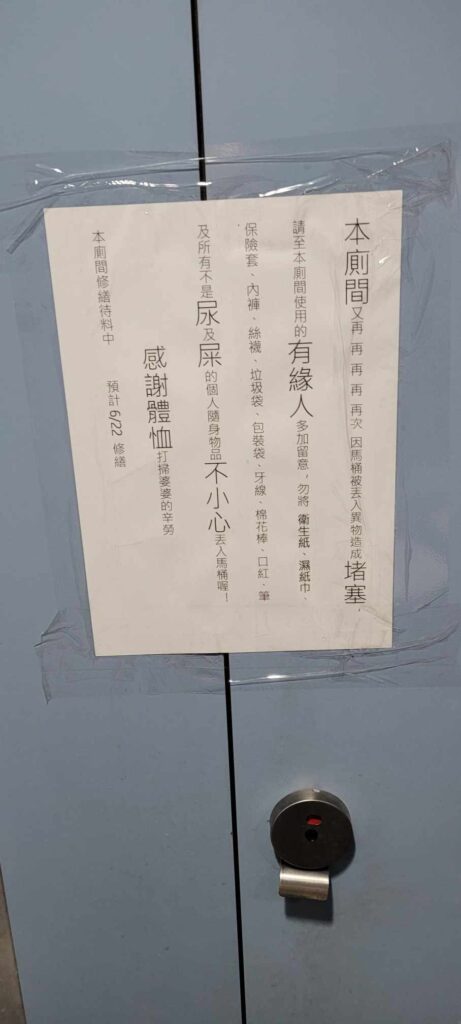 本廁間又再再再再再次 因馬桶被丟入異物造成堵塞，
請至本廁間使用的有緣人多加留意，勿將 衛生紙、濕紙巾、
保險套、內褲、絲襪、垃圾袋、包裝袋、牙線、棉花棒、口紅、筆
及所有不是尿及屎的個人隨身物品不小心丟入馬桶喔！
感謝體恤打掃婆婆的辛勞
本廁間修繕待料中 預計 6/22 修繕